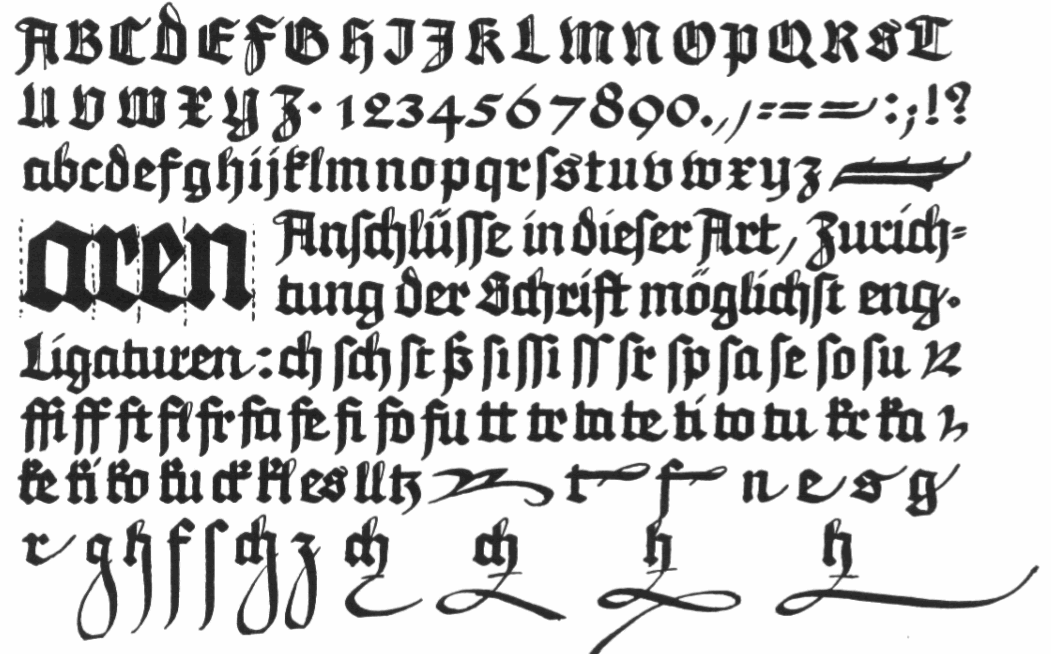 ABCDEFGHIJKLMNOPQRST
UVWXYZ· 1234567890.,/=== :;!?
abcdefghijklmnopqrſstuvwxyz
aren
Anſchlüſſe in dieſer Art, Zurich=
tung der Schrift möglichſt eng.
Ligaturen: ch ſch ſt ß ſi ſſi ſſ ſr ſp ſa ſe ſo ſu
ffi ff ft fl fr fa fe fi fo fu tt tr ta te ti to tu kr ka
ke ki ko ku ck kl es ll tz t f n e s g
r g h f ſ ch z ch ch h h